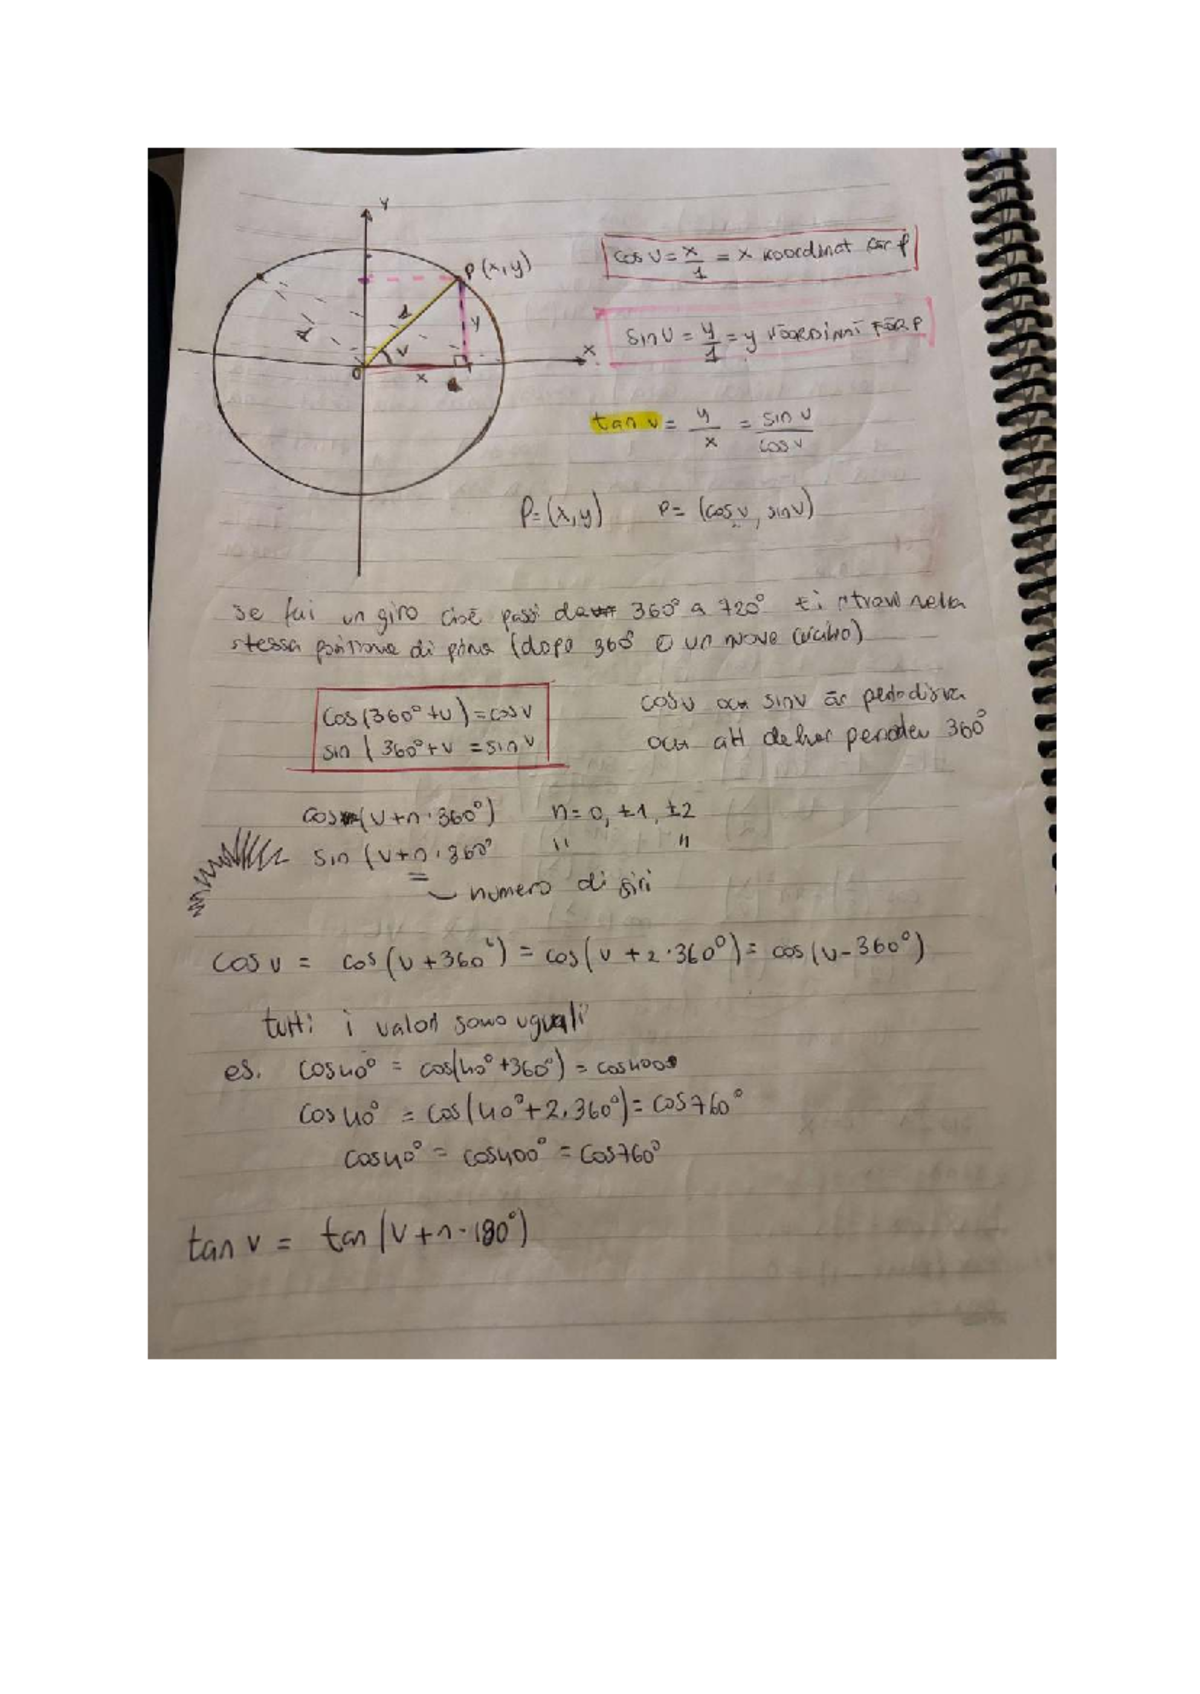 y
P(x,y)
1
1
y
v
x
0
x
cos v = x/1 = x koordinat för P
sin v = y/1 = y KOORDINAT FÖR P
tan v = y/x = sin v/cos v
P=(x,y) P= (cos v, sin v)
se fai un giro cioè passi da 360° a 720° ti ritrovi nella
stessa posizione di prima (dopo 360° è un nuovo cerchio)
cos(360°+v)=cos v
sin(360°+v = sin v
cos v och sin v är periodiska
och att de har perioden 360°
cos (v+n·360°) n=0, ±1, ±2
sin (v+n·360° " "
= numero di giri
cos v = cos(v+360°) = cos(v+2·360°)= cos(v-360°)
tutti i valori sono uguali
es. cos40° = cos(40°+360°) = cos400°
cos40° = cos(40°+2.360°)= cos760°
cos40° = cos400° = cos760°
tan v = tan(v+n·180°)